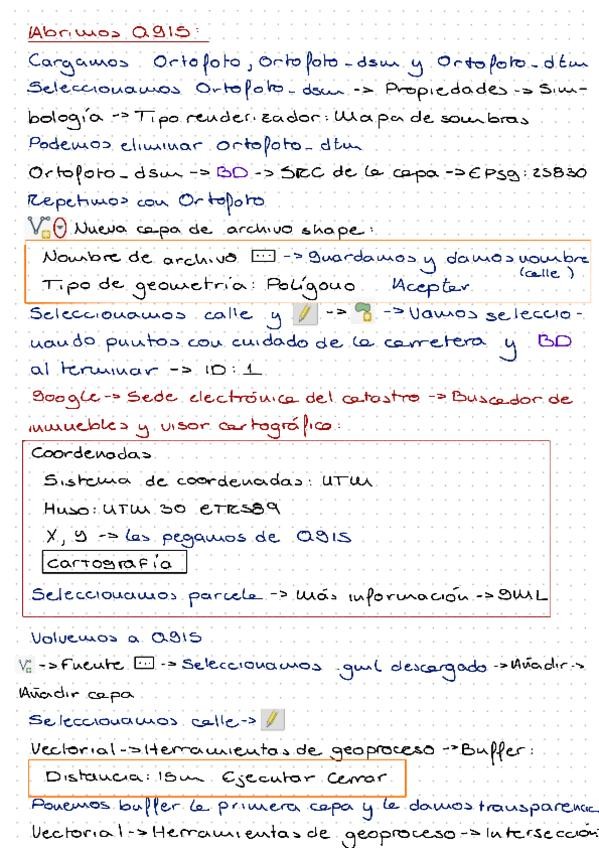 Abrimos QGIS:
Cargamos Ortofoto, Ortofoto-dsm y Ortofoto-dtm
Seleccionamos Ortofoto-dsm -> Propiedades -> Sim-
bología -> Tipo renderizador: Mapa de sombras
Podemos eliminar ortofoto-dtm
Ortofoto-dsm -> BD -> SRC de la capa -> EPSG: 25830
Repetimos con Ortofoto
Nueva capa de archivo shape:
Nombre de archivo ... -> guardamos y damos nombre
(calle)
Tipo de geometría: Polígono Aceptar
Seleccionamos calle y -> -> Vamos seleccio-
nando puntos con cuidado de la carretera y BD
al terminar -> ID: 1
Google -> Sede electrónica del catastro -> Buscador de
inmuebles y visor cartográfico:
Coordenadas
Sistema de coordenadas: UTM
Huso: UTM 30 ETRS89
X, Y -> las pegamos de QGIS
Cartografía
Seleccionamos parcela -> más información -> GML
Volvemos a QGIS
-> Fuente ... -> Seleccionamos gml descargado -> Añadir ->
Añadir capa
Seleccionamos calle ->
Vectorial -> Herramientas de geoproceso -> Buffer:
Distancia: 15m Ejecutar Cerrar
Ponemos buffer la primera capa y le damos transparenc
Vectorial -> Herramientas de geoproceso -> Intersección